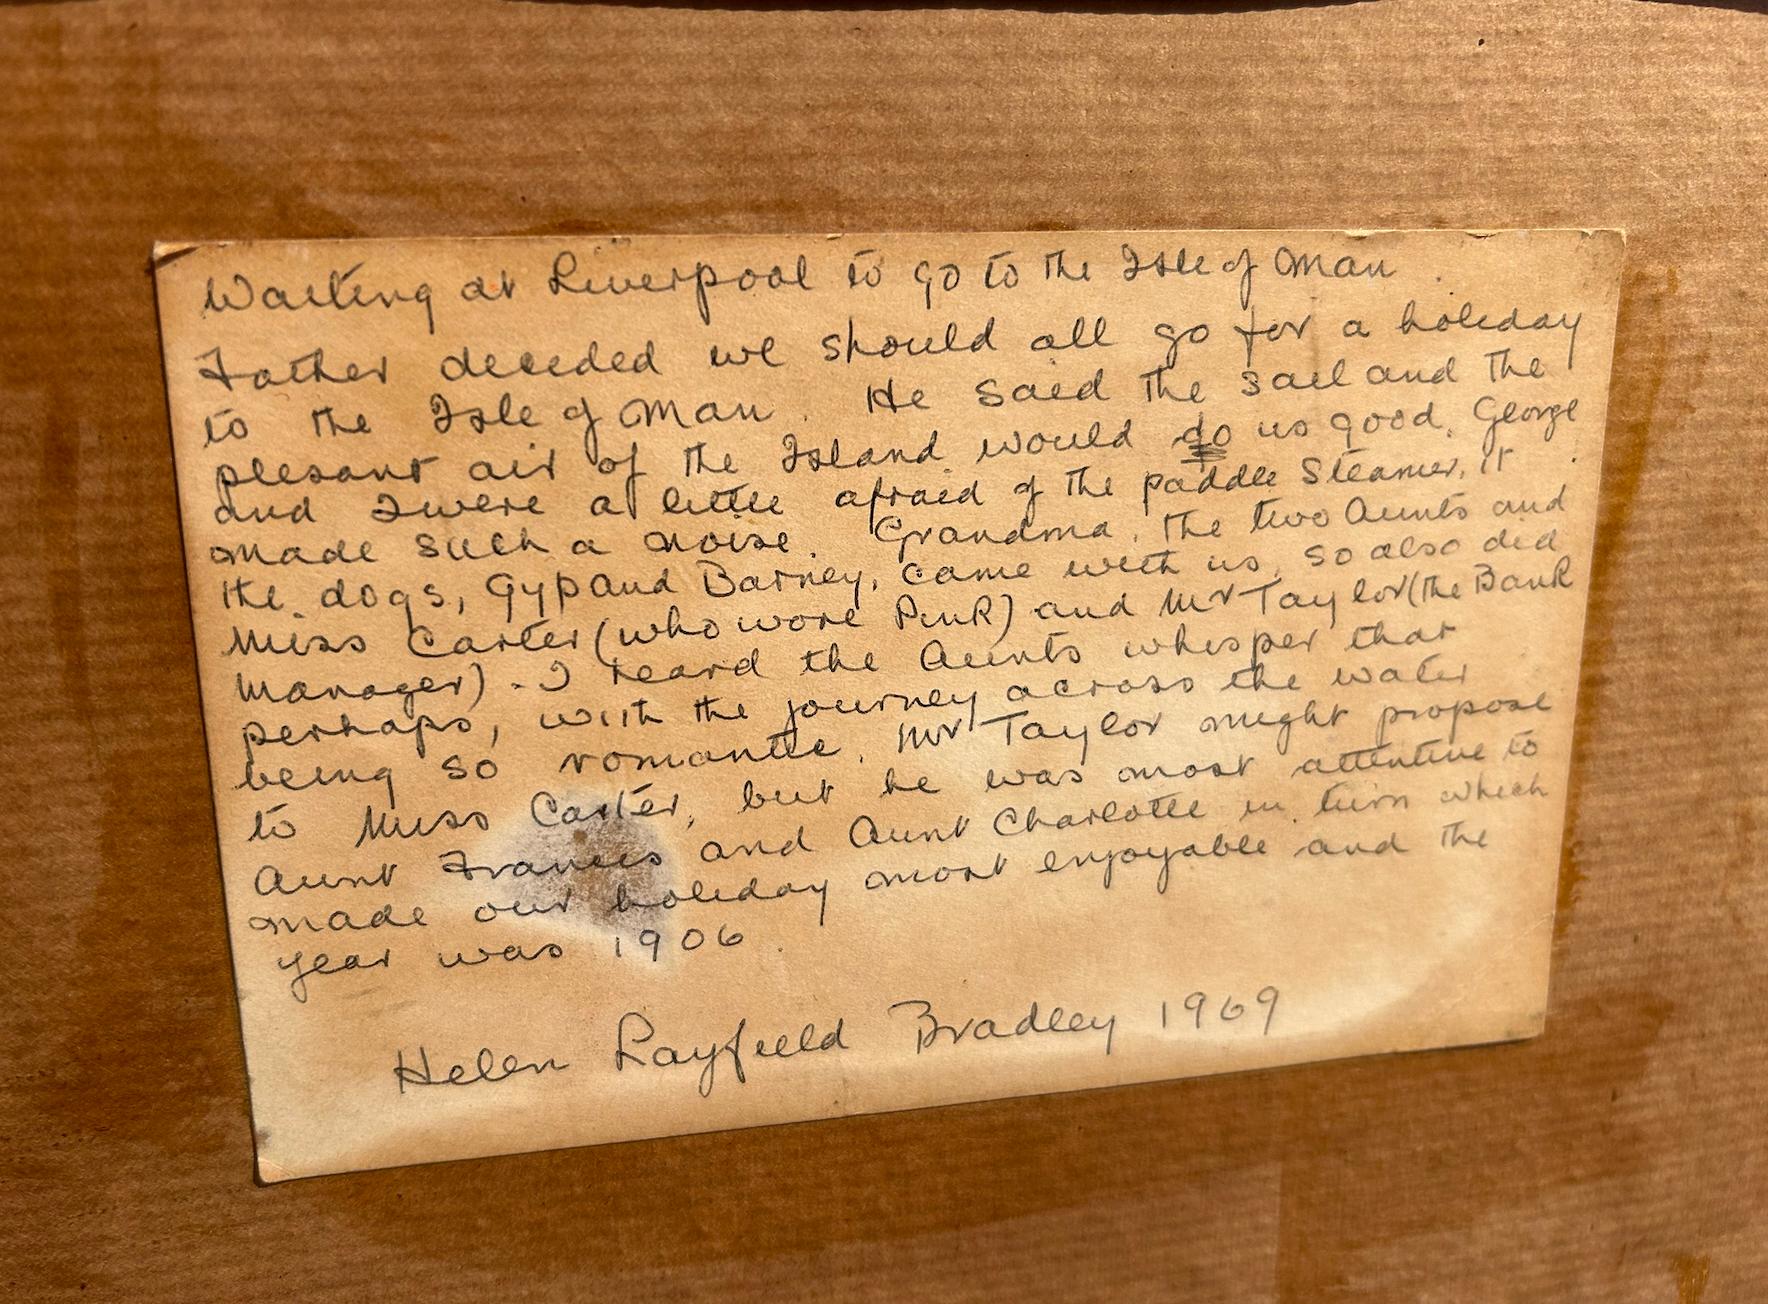 Waiting at Liverpool to go to the Isle of Man.
Father decided we should all go for a holiday
to the Isle of Man. He said the sail and the
plesant air of the Island would do us good. George
and I were a little afraid of the paddle steamer, it
made such a noise. Grandma, the two Aunts and
the dogs, Gyp and Barney, came with us, so also did
Miss Carter (who wore Pink) and Mr Taylor (the Bank
Manager). I heard the Aunts whisper that
perhaps, with the journey across the water
being so romantic, Mr Taylor might propose
to Miss Carter, but he was most attentive to
Aunt Frances and Aunt Charlotte in turn which
made our holiday most enjoyable and the
year was 1906.
Helen Layfield Bradley 1969